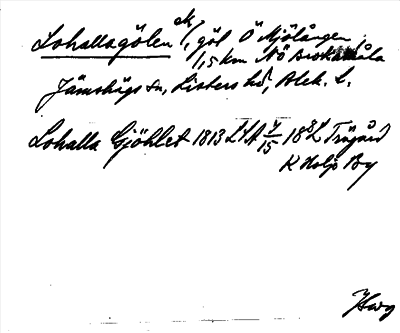 Lohallagölen ek /, göl Ö Mjölången,
1,5 km NÖ Brokamåla
Jämshögs sn, Listers hd, Blek. l.
Lohalla Gjöhlet 1813 LSA 7/15 18
K Holje By